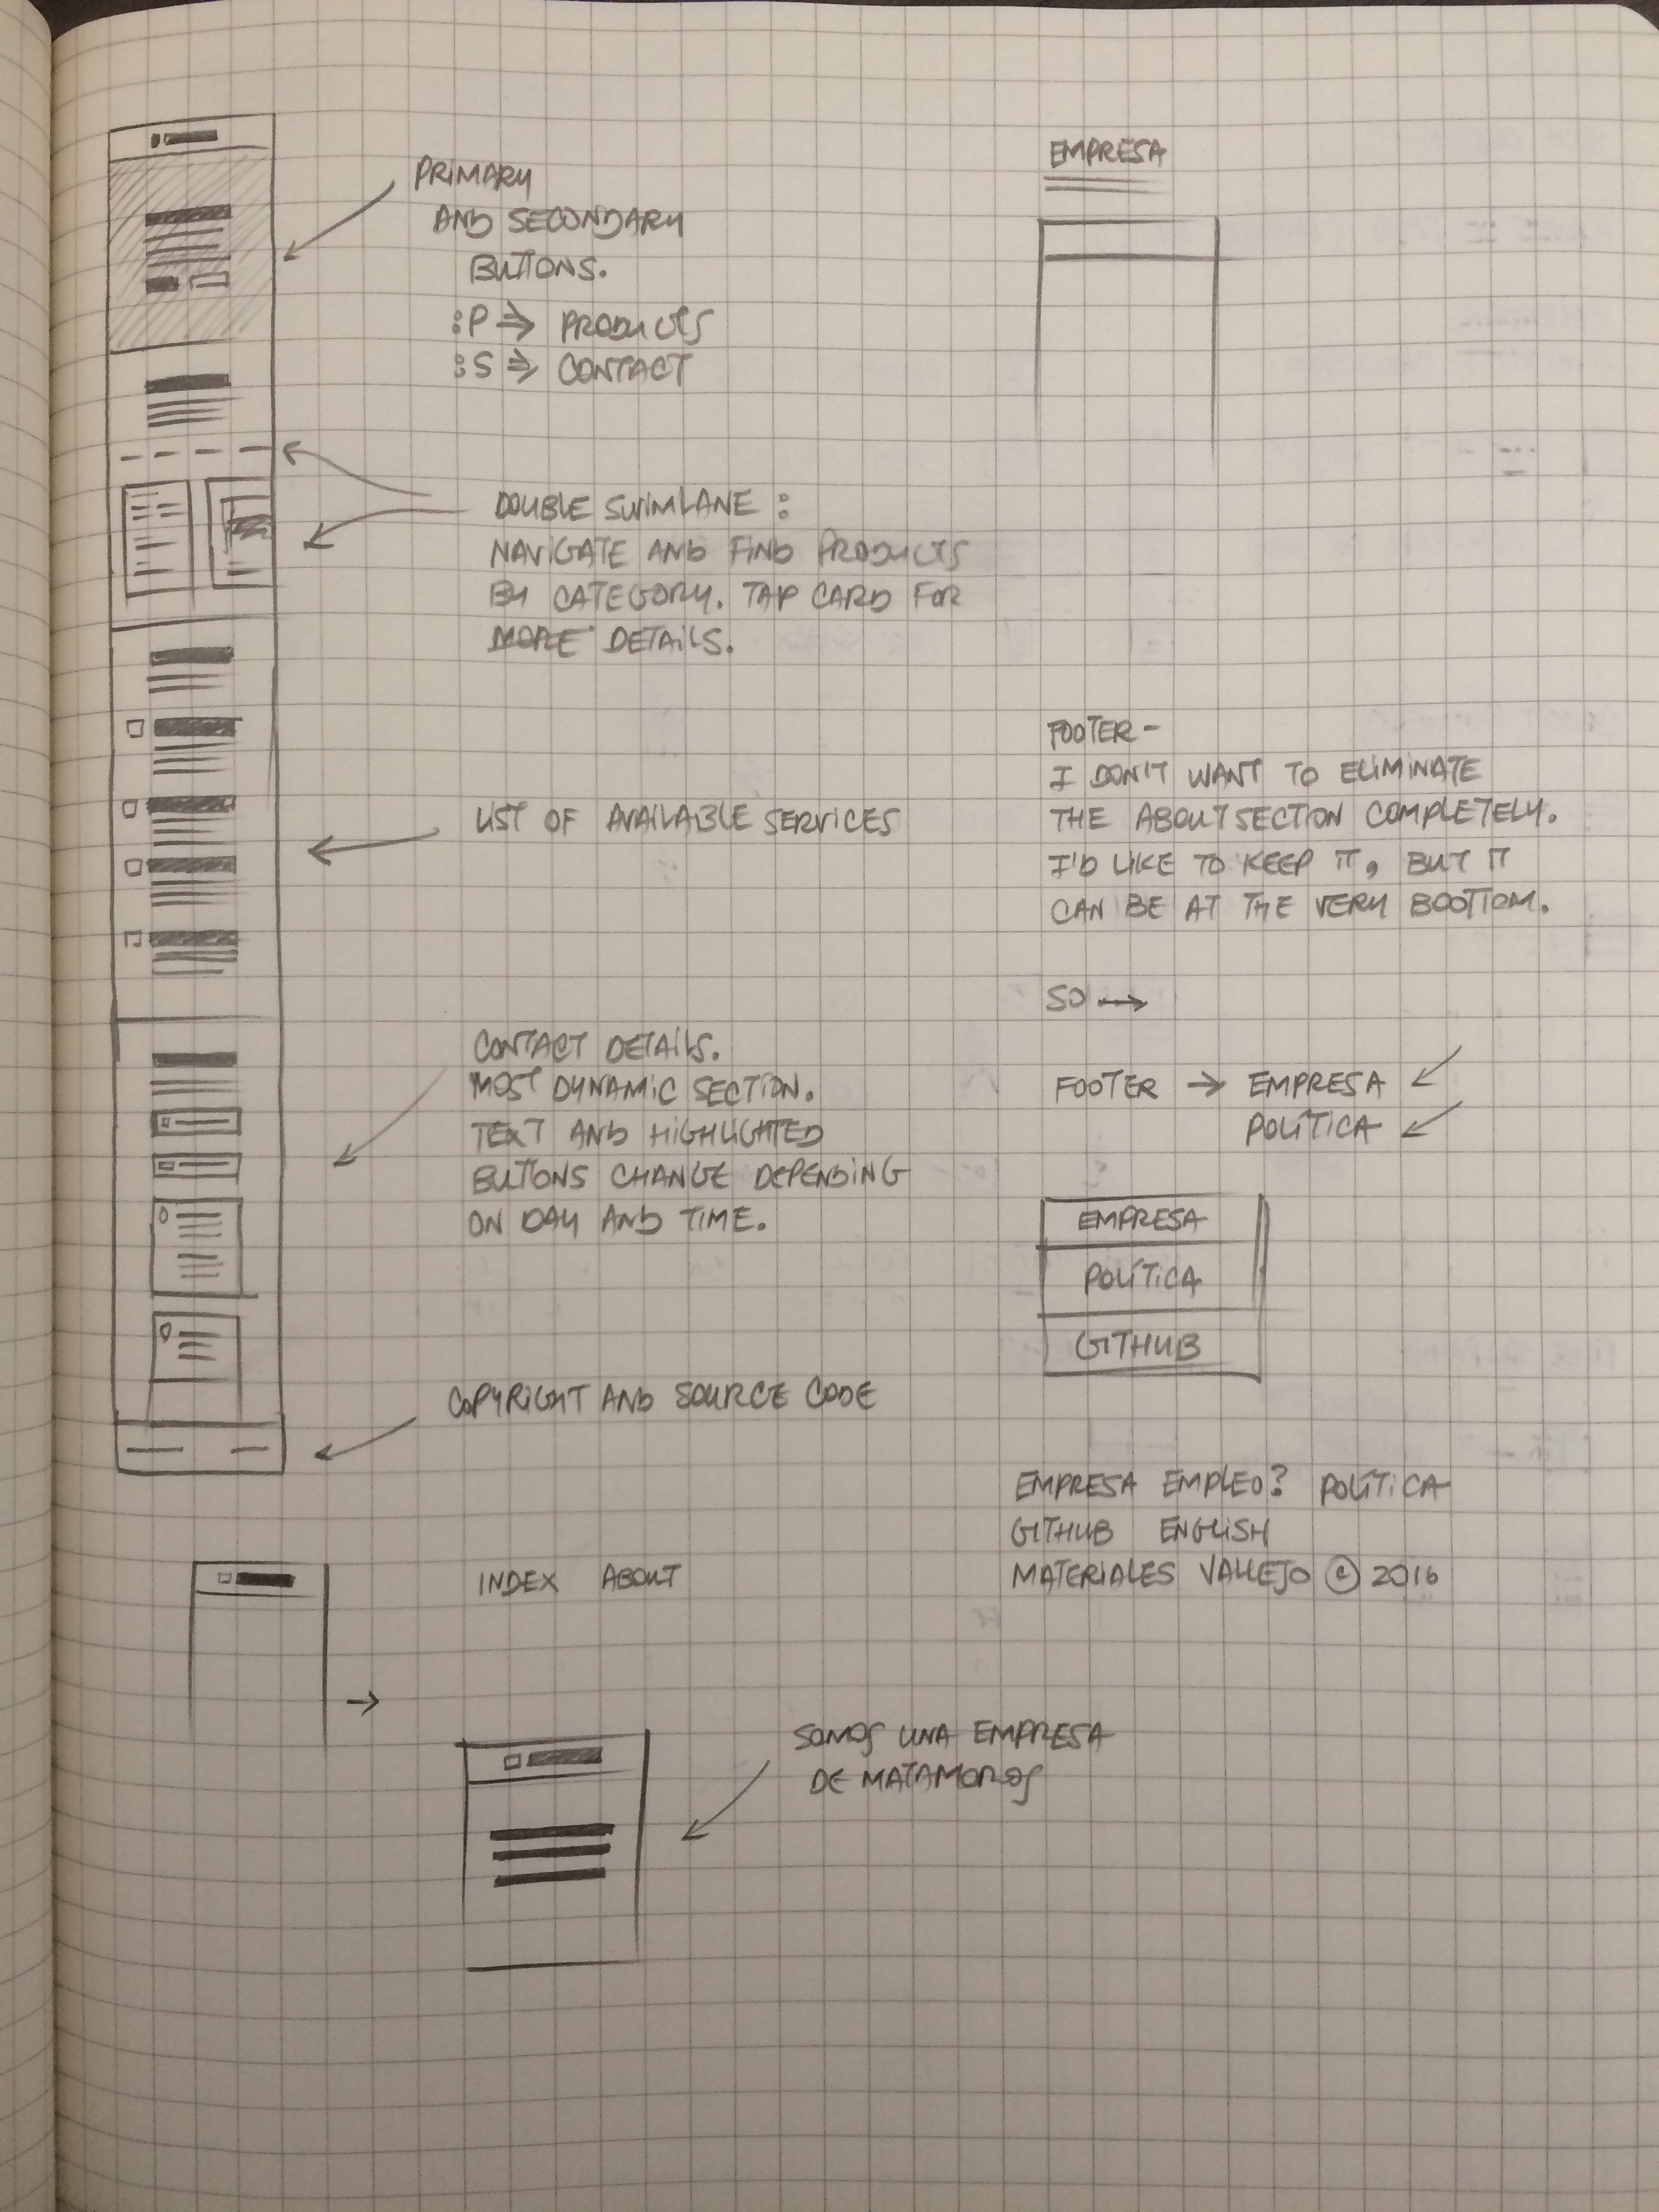 PRIMARY
AND SECONDARY
BUTTONS.
:P ⇒ PRODUCTS
:S ⇒ CONTACT
DOUBLE SWIMLANE:
NAVIGATE AND FIND PRODUCTS
BY CATEGORY. TAP CARD FOR
MORE DETAILS.
LIST OF AVAILABLE SERVICES
CONTACT DETAILS.
MOST DYNAMIC SECTION.
TEXT AND HIGHLIGHTED
BUTTONS CHANGE DEPENDING
ON DAY AND TIME.
COPYRIGHT AND SOURCE CODE
INDEX ABOUT
SOMOS UNA EMPRESA
DE MATAMOROS
EMPRESA
FOOTER-
I DON'T WANT TO ELIMINATE
THE ABOUT SECTION COMPLETELY.
I'D LIKE TO KEEP IT, BUT IT
CAN BE AT THE VERY BOOTTOM.
SO →
FOOTER → EMPRESA
POLÍTICA
EMPRESA
POLÍTICA
GITHUB
EMPRESA EMPLEO? POLÍTICA
GITHUB ENGLISH
MATERIALES VALLEJO © 2016